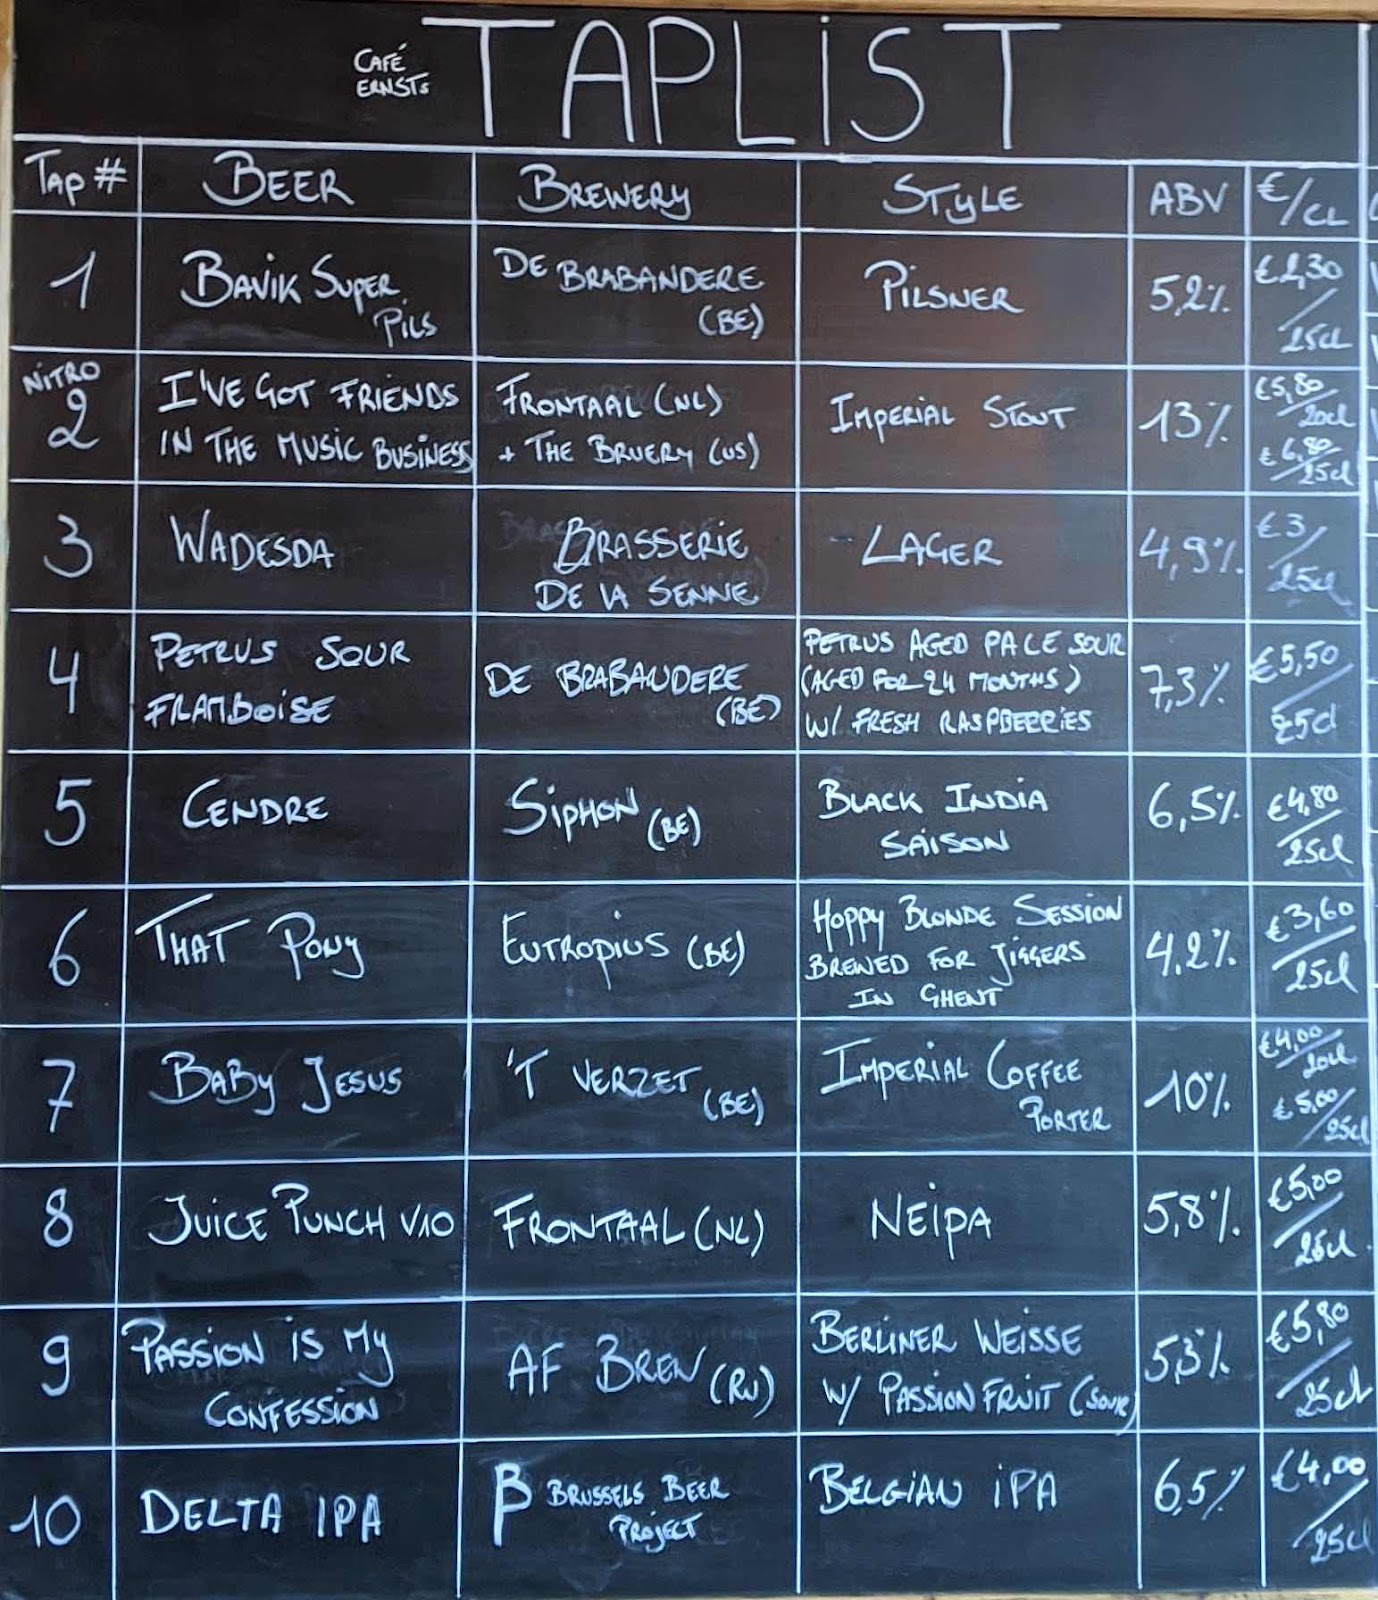 CAFÉ ERNSTs TAPLiST
Tap # BEER BREWERY STYLE ABV €/CL
1 BAVIK SUPER PiLS DE BRABANDERE (BE) PiLSNER 5,2% €2,30/25cl
NiTRO 2 I'VE GOT FRIENDS IN THE MUSIC BUSiNESS FRONTAAL (NL) + THE BRUERY (US) IMPERIAL STOUT 13% €5,80/20cl €6,80/25cl
3 WADESDA BRASSERIE DE LA SENNE - LAGER 4,9% €3/25cl
4 PETRUS SOUR FRAMBOISE DE BRABANDERE (BE) PETRUS AGED PALE SOUR (AGED FOR 24 MONTHS) W/ FRESH RASPBERRiES 7,3% €5,50/25cl
5 CENDRE SiPHON (BE) BLACK INDiA SAiSON 6,5% €4,80/25cl
6 THAT PONY EUTROPIUS (BE) HOPPY BLONDE SESSiON BREWED FOR JIGGERS IN GHENT 4,2% €3,60/25cl
7 BABY JESUS 'T VERZET (BE) IMPERIAL COFFEE PORTER 10% €4,00/20cl €5,00/25cl
8 JUiCE PUNCH V.10 FRONTAAL (NL) NEiPA 5,8% €5,00/25cl
9 PASSION iS MY CONFESSiON AF BREW (RU) BERLiNER WEISSE W/ PASSION FRUIT (SOUR) 5,3% €5,80/25cl
10 DELTA IPA β BRUSSELS BEER PROJECT BELGIAN iPA 6,5% €4,00/25cl